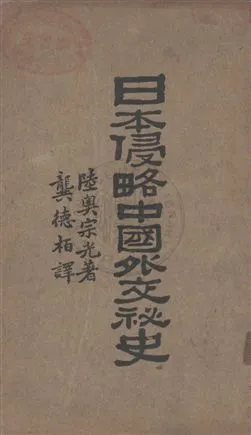 日本侵略中國外交祕史
陸奧宗光著
龔德柏譯